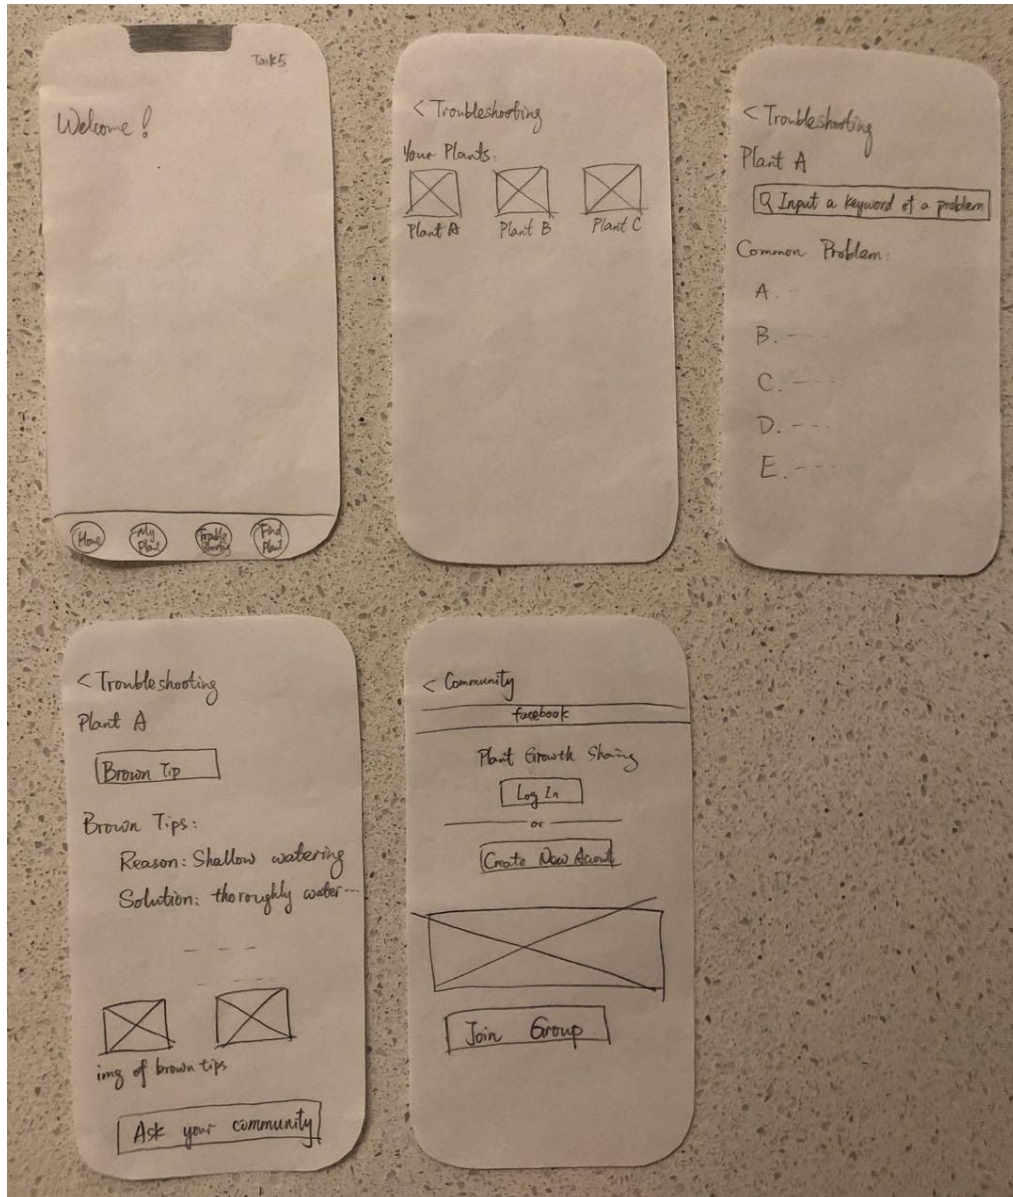 Task5
Welcome!
Home
My Plant
Trouble shooting
Find Plant
< Troubleshooting
Your Plants:
Plant A
Plant B
Plant C
< Troubleshooting
Plant A
Input a keyword of a problem
Common Problem:
A. - -
B. - - -
C. - - -
D. - - -
E. - - -
< Troubleshooting
Plant A
Brown Tip
Brown Tips:
Reason: Shallow watering
Solution: thoroughly water - -
img of brown tips
Ask your community
< Community
facebook
Plant Growth Sharing
Log In
or
Create New Acount
Join Group